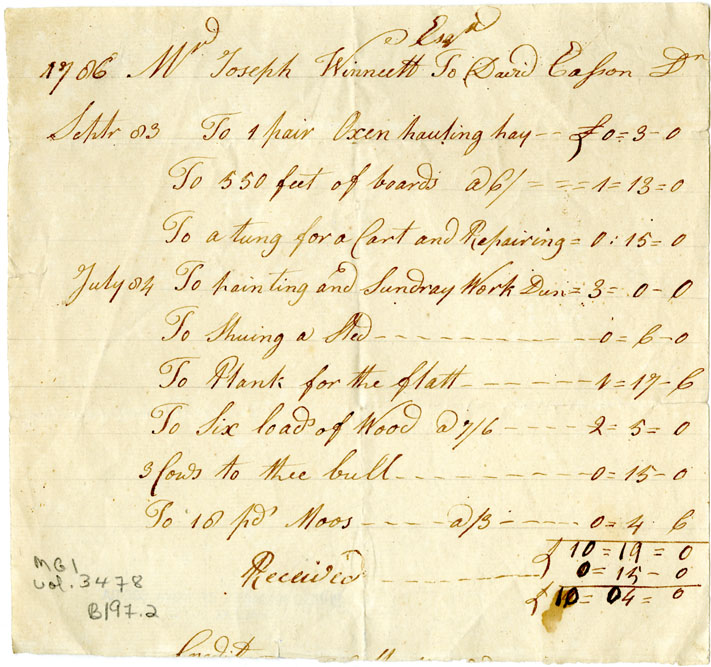 Esqr
1786 Mr Joseph Winneett To David Easson Dr
Septr 83 To 1 pair Oxen hauling hay -- £ 0=3-0
To 550 feet of boards a 6/ = -- = 1=13=0
To a tung for a Cart and Repairing = 0:15=0
July 84 To painting and Sundray Work Dun = 3=0-0
To Shuing a Sled ---------- 0=6-0
To Plank for the flatt ------- 1=17-6
To Six loads of Wood a 7/6 ---- 2=5=0
3 Cows to thee bull ---------- 0=15-0
To 18 pd Moos ---- a/3 ---- 0=4 6
£ 10=19=0
Received ---------- 0=15-0
£ 10=04=0
MG1
vol. 3478
B197.2
Credit